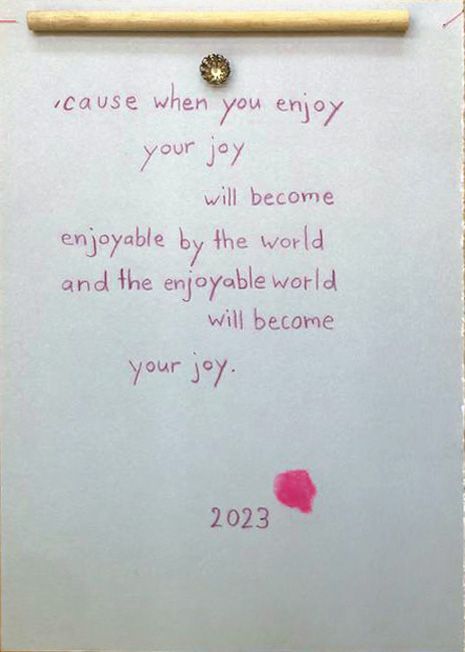 'cause when you enjoy
your joy
will become
enjoyable by the world
and the enjoyable world
will become
your joy.
2023